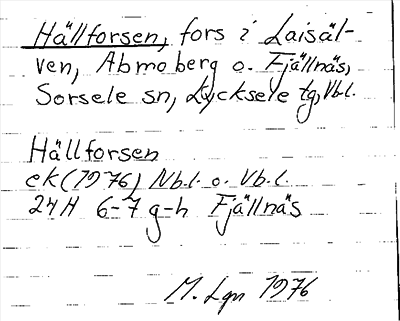 Hällforsen, fors i Laisäl-
ven, Abmoberg o. Fjällnäs,
Sorsele sn, Lycksele tg, Vb.l.
Hällforsen
ek (1976) Nb.l. o. Vb.l.
24H 6-7 g-h Fjällnäs
M. Lgn 1976